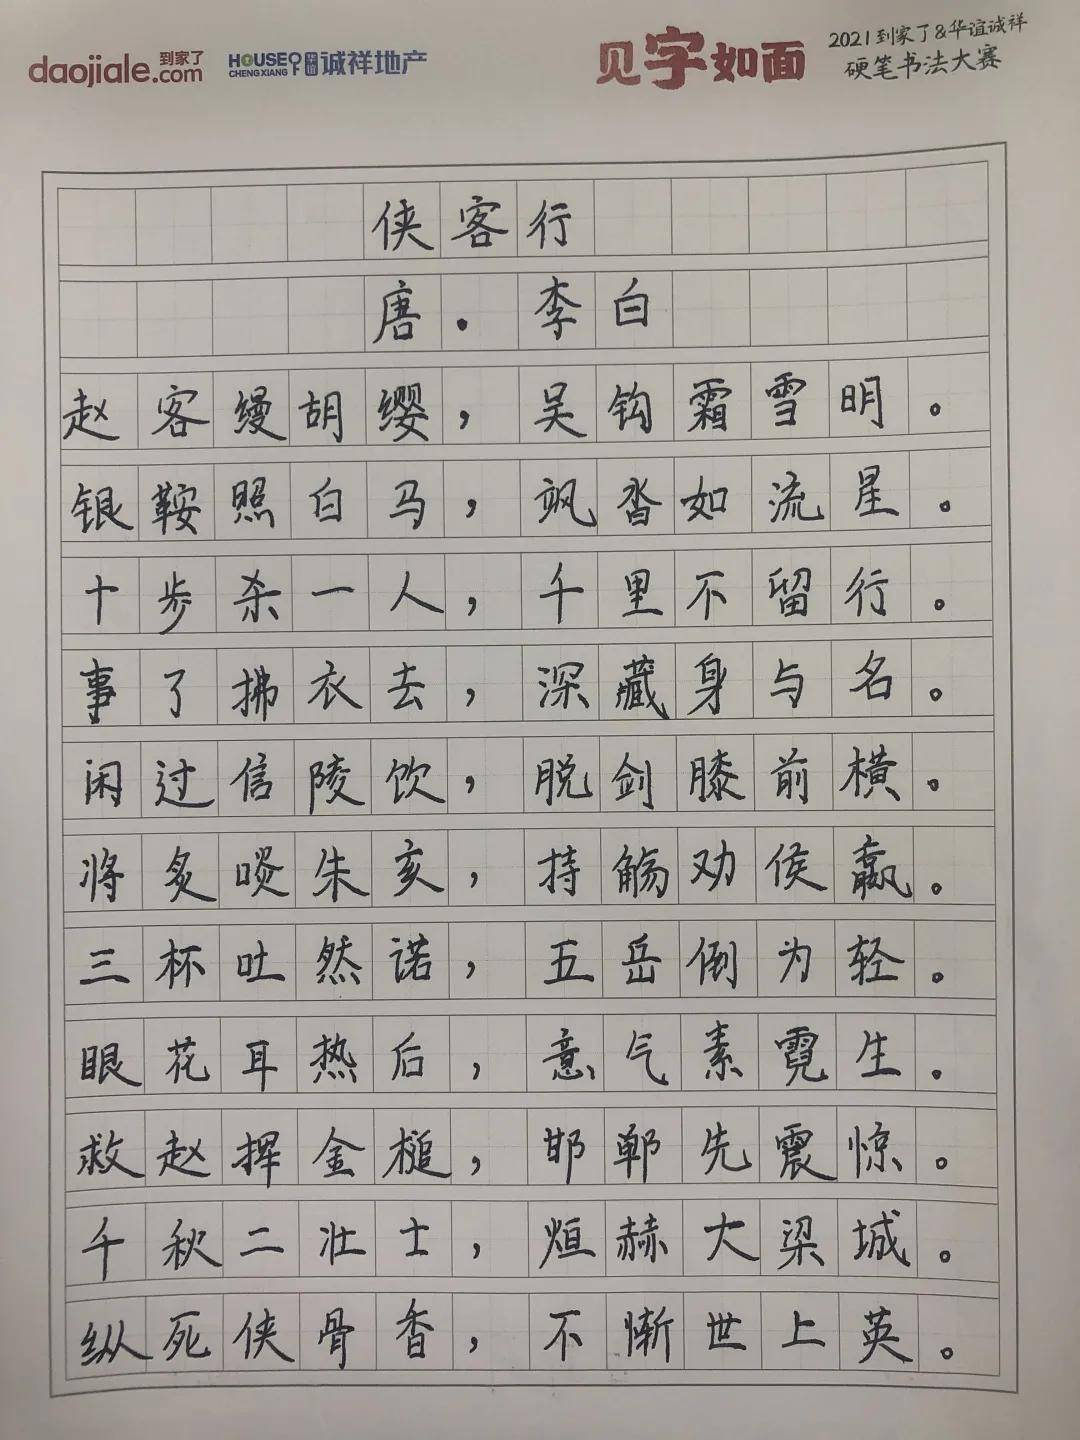 daojiale.com 到家了
HOUSE CHENGXIANG 中国 诚祥地产
见字如面
2021到家了&华谊诚祥
硬笔书法大赛
侠客行
唐.李白
赵客缦胡缨，吴钩霜雪明。
银鞍照白马，飒沓如流星。
十步杀一人，千里不留行。
事了拂衣去，深藏身与名。
闲过信陵饮，脱剑膝前横。
将炙啖朱亥，持觞劝侯嬴。
三杯吐然诺，五岳倒为轻。
眼花耳热后，意气素霓生。
救赵挥金槌，邯郸先震惊。
千秋二壮士，烜赫大梁城。
纵死侠骨香，不惭世上英。